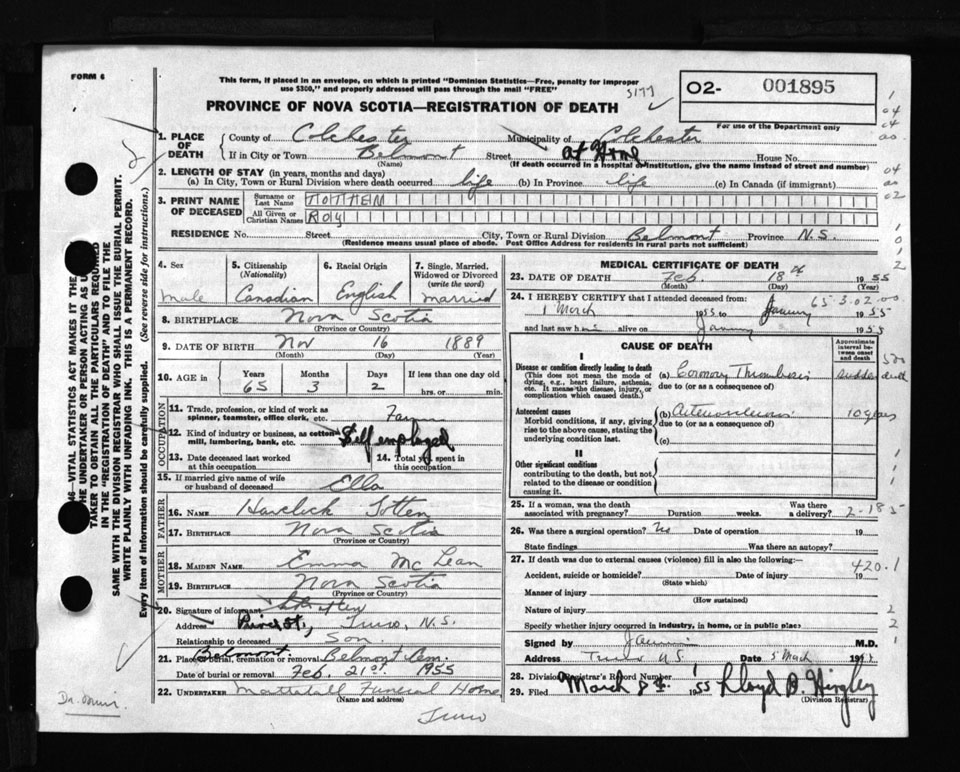 FORM 6
This form, if placed in an envelope, on which is printed "Dominion Statistics—Free, penalty for improper
use $300," and properly addressed will pass through the mail "FREE"
5177
PROVINCE OF NOVA SCOTIA—REGISTRATION OF DEATH
O2- 001895
For use of the Department only
1. PLACE OF DEATH
County of Colchester Municipality of Colchester
If in City or Town Belmont Street at Home House No.
(Name) (If death occurred in a hospital or institution, give the name instead of street and number)
2. LENGTH OF STAY (in years, months and days)
(a) In City, Town or Rural Division where death occurred life (b) In Province life (c) In Canada (if immigrant)
3. PRINT NAME OF DECEASED
Surname or Last Name TOTTEN
All Given or Christian Names ROY
RESIDENCE No. Street City, Town or Rural Division Belmont Province N.S.
(Residence means usual place of abode. Post Office Address for residents in rural parts not sufficient)
4. Sex male
5. Citizenship (Nationality) Canadian
6. Racial Origin English
7. Single, Married, Widowed or Divorced (write the word) married
8. BIRTHPLACE Nova Scotia
(Province or Country)
9. DATE OF BIRTH Nov 16 1889
(Month) (Day) (Year)
10. AGE in Years 65 Months 3 Days 2 If less than one day old
hrs. or min.
11. Trade, profession or kind of work as
spinner, teamster, office clerk, etc.
12. Kind of industry or business, as cotton
mill, lumbering, bank, etc. Self employed
13. Date deceased last worked at this occupation
14. Total yrs. spent in this occupation
OCCUPATION
15. If married give name of wife
or husband of deceased Ella
FATHER
16. NAME Havelock Totten
17. BIRTHPLACE Nova Scotia
(Province or Country)
MOTHER
18. MAIDEN NAME Emma McLean
19. BIRTHPLACE Nova Scotia
(Province or Country)
20. Signature of informant
Address Truro, N.S.
Relationship to deceased Son
21. Place of burial, cremation or removal Belmont Belmont Cem.
Date of burial or removal Feb. 21st 1955
22. UNDERTAKER Mattatall Funeral Home
(Name and address)
Truro
MEDICAL CERTIFICATE OF DEATH
23. DATE OF DEATH Feb. 18th 1955
(Month) (Day)
24. I HEREBY CERTIFY that I attended deceased from:
65-3-02-00
1 March 1955 to January 1955
and last saw him alive on January 1955
CAUSE OF DEATH
Approximate interval between onset and death
I
Disease or condition directly leading to death
(This does not mean the mode of
dying, e.g., heart failure, asthenia,
etc. It means the disease, injury, or
complication which caused death.)
(a) Coronary Thrombosis sudden death
due to (or as a consequence of)
Antecedent causes
Morbid conditions, if any, giving
rise to the above cause, stating the
underlying condition last.
(b) Arteriosclerosis 10 years
due to (or as a consequence of)
(c)
II
Other significant conditions
contributing to the death, but not
related to the disease or condition
causing it.
25. If a woman, was the death
associated with pregnancy? Duration weeks. Was there a delivery?
2-18 5
26. Was there a surgical operation? No Date of operation 19
State findings Was there an autopsy?
27. If death was due to external causes (violence) fill in also the following:—
420.1
Accident, suicide or homicide? Date of injury 19
(State which)
Manner of injury
(How sustained)
Nature of injury
Specify whether injury occurred in industry, in home, or in public place
Signed by M.D.
Address Truro N.S. Date 5 March 1955
28. Division Registrar's Record Number
29. Filed March 8th 1955 Lloyd D. Hingley
(Division Registrar)
THE VITAL STATISTICS ACT MAKES IT THE
THE UNDERTAKER OR PERSON ACTING AS
TAKER TO OBTAIN ALL THE PARTICULARS REQUIRED
IN THE "REGISTRATION OF DEATH" AND TO FILE THE
SAME WITH THE DIVISION REGISTRAR WHO SHALL ISSUE THE BURIAL PERMIT.
WRITE PLAINLY WITH UNFADING INK. THIS IS A PERMANENT RECORD.
Every item of information should be carefully supplied. (See reverse side for instructions.)